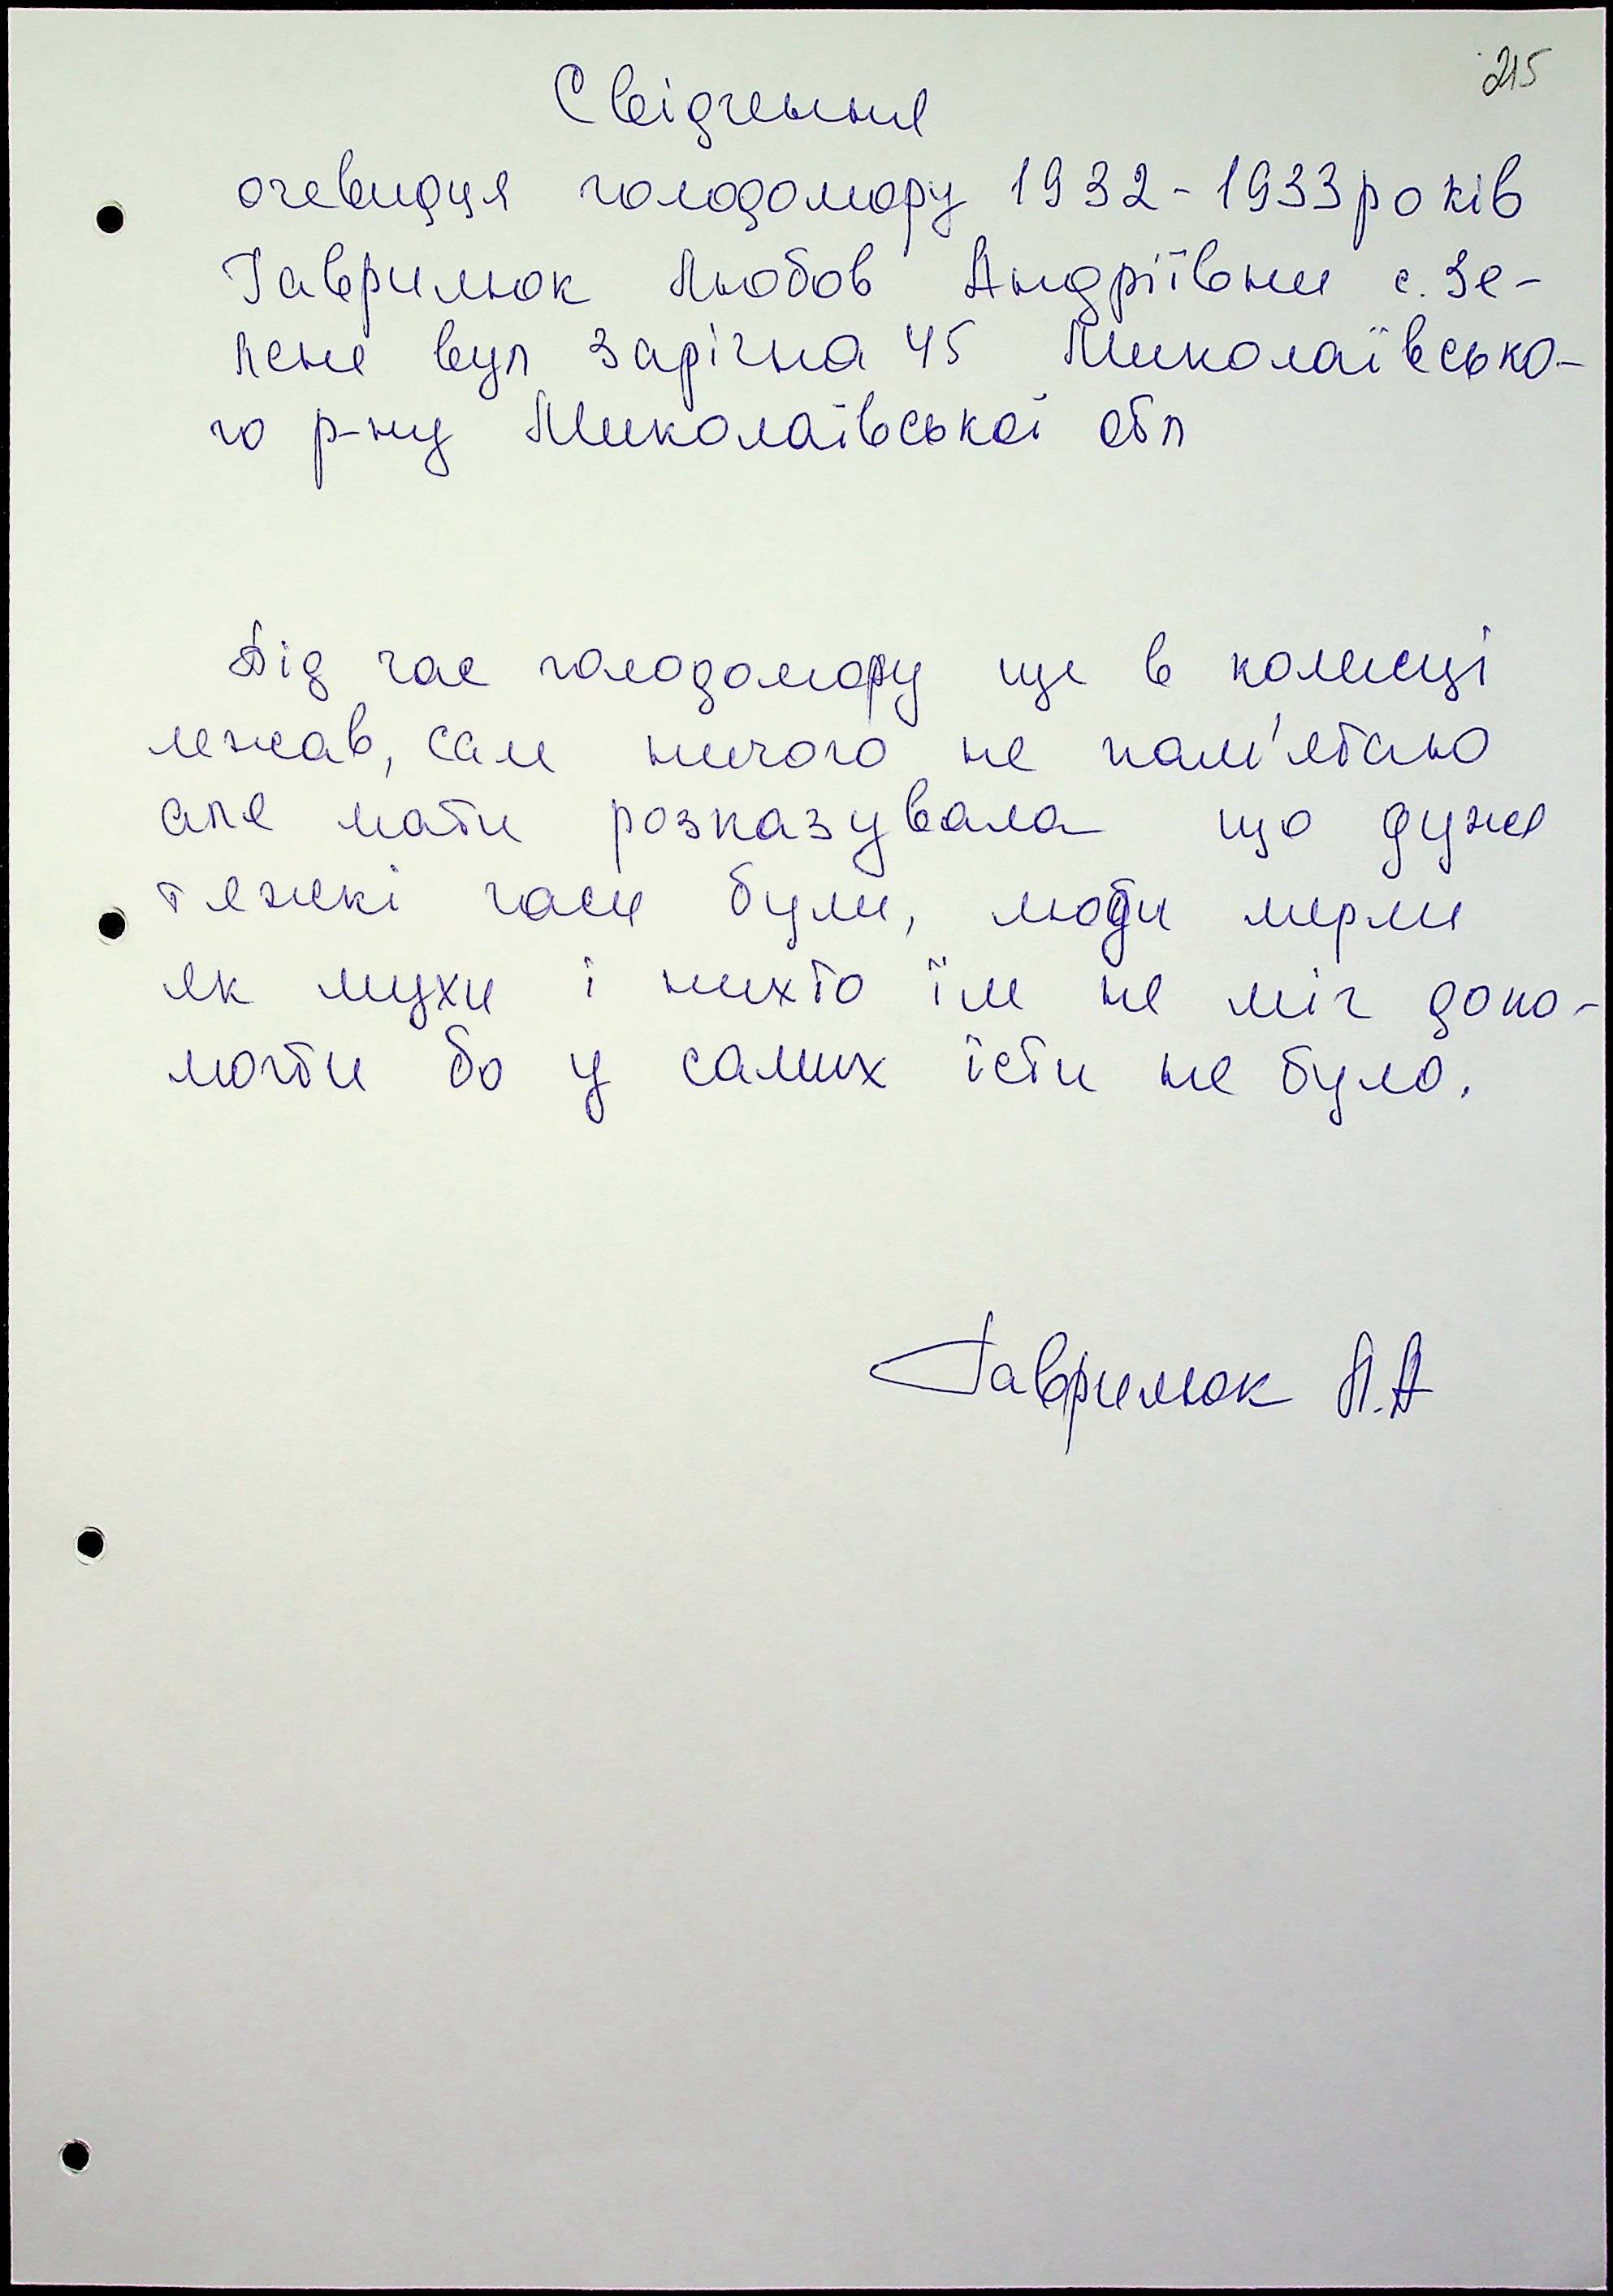 215
Свідчення
очевидця голодомору 1932-1933 років
Гаврилюк Любов Андріївни с. Зе-
лене вул Зарічна 45 Миколаївсько-
го р-ну Миколаївської обл
Під час голодомору ще в колисці
лежав, сам ничого не пам'ятаю
але мати розказувала що дуже
тяжкі часи були, люди мерли
як мухи і нихто їм не міг допо-
могти бо у самих їсти не було.
Гаврилюк Л.А